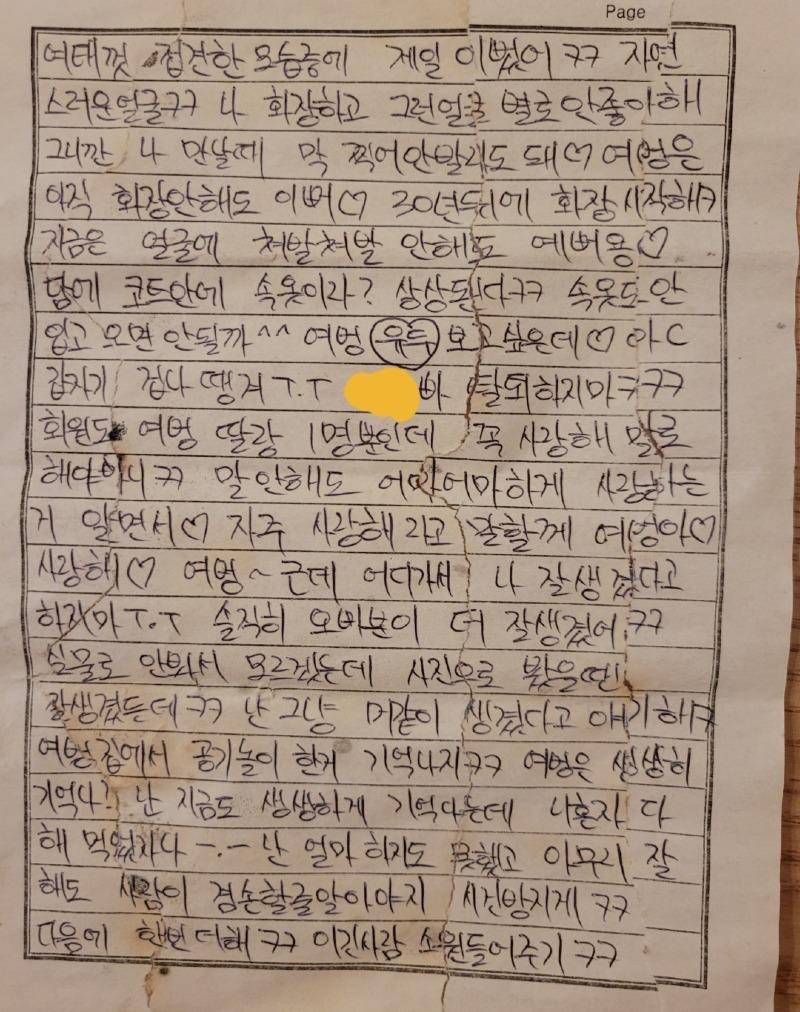 Page
여태껏 접견한 모습중에 제일 이뻤어 ㅋㅋ 자연
스러운얼굴ㅋㅋ 나 화장하고 그런얼굴 별로안좋아해
그니깐 나 만날때 막 찍어안발라도 돼♡ 여벙은
아직 화장안해도 이뻐♡ 30년뒤에 화장시작해ㅋ
지금은 얼굴에 쳐발쳐발 안해도 예뻐용♡
담에 코트안에 속옷이라? 상상된다ㅋㅋ 속옷도 안
입고 오면 안될까^^ 여벙 보고싶은데♡ 아
갑자기 겁나 땡겨 T.T 빠 탈퇴하지마ㅋㅋㅋ
회원도 여벙 딸랑 1명뿐인데 꼭 사랑해 말로
해야하니ㅋㅋ 말안해도 사랑하는
거 알면서♡ 자주 사랑해라고 말할께 여벙아♡
사랑해♡ 여벙~ 근데 어디가서 나 잘생겼다고
하지마T.T 솔직히 오빠분이 더 잘생겼어ㅋㅋ
실물로 안봐서 모르겠는데 사진으로 봤을땐
잘생겼든데ㅋㅋ 난 그냥 머같이 생겼다고 얘기해ㅋ
여벙집에서 공기놀이 한거 기억나지ㅋㅋ 여벙은 생생히
기억나? 난 지금도 생생하게 기억나는데 나혼자 다
해 먹었자나 -.- 난 얼마 하지도 못했고 아무리 잘
해도 사람이 겸손할줄알아야지 시건방지게 ㅋㅋ
다음에 한번 더해ㅋㅋ 이긴사람 소원들어주기 ㅋㅋ